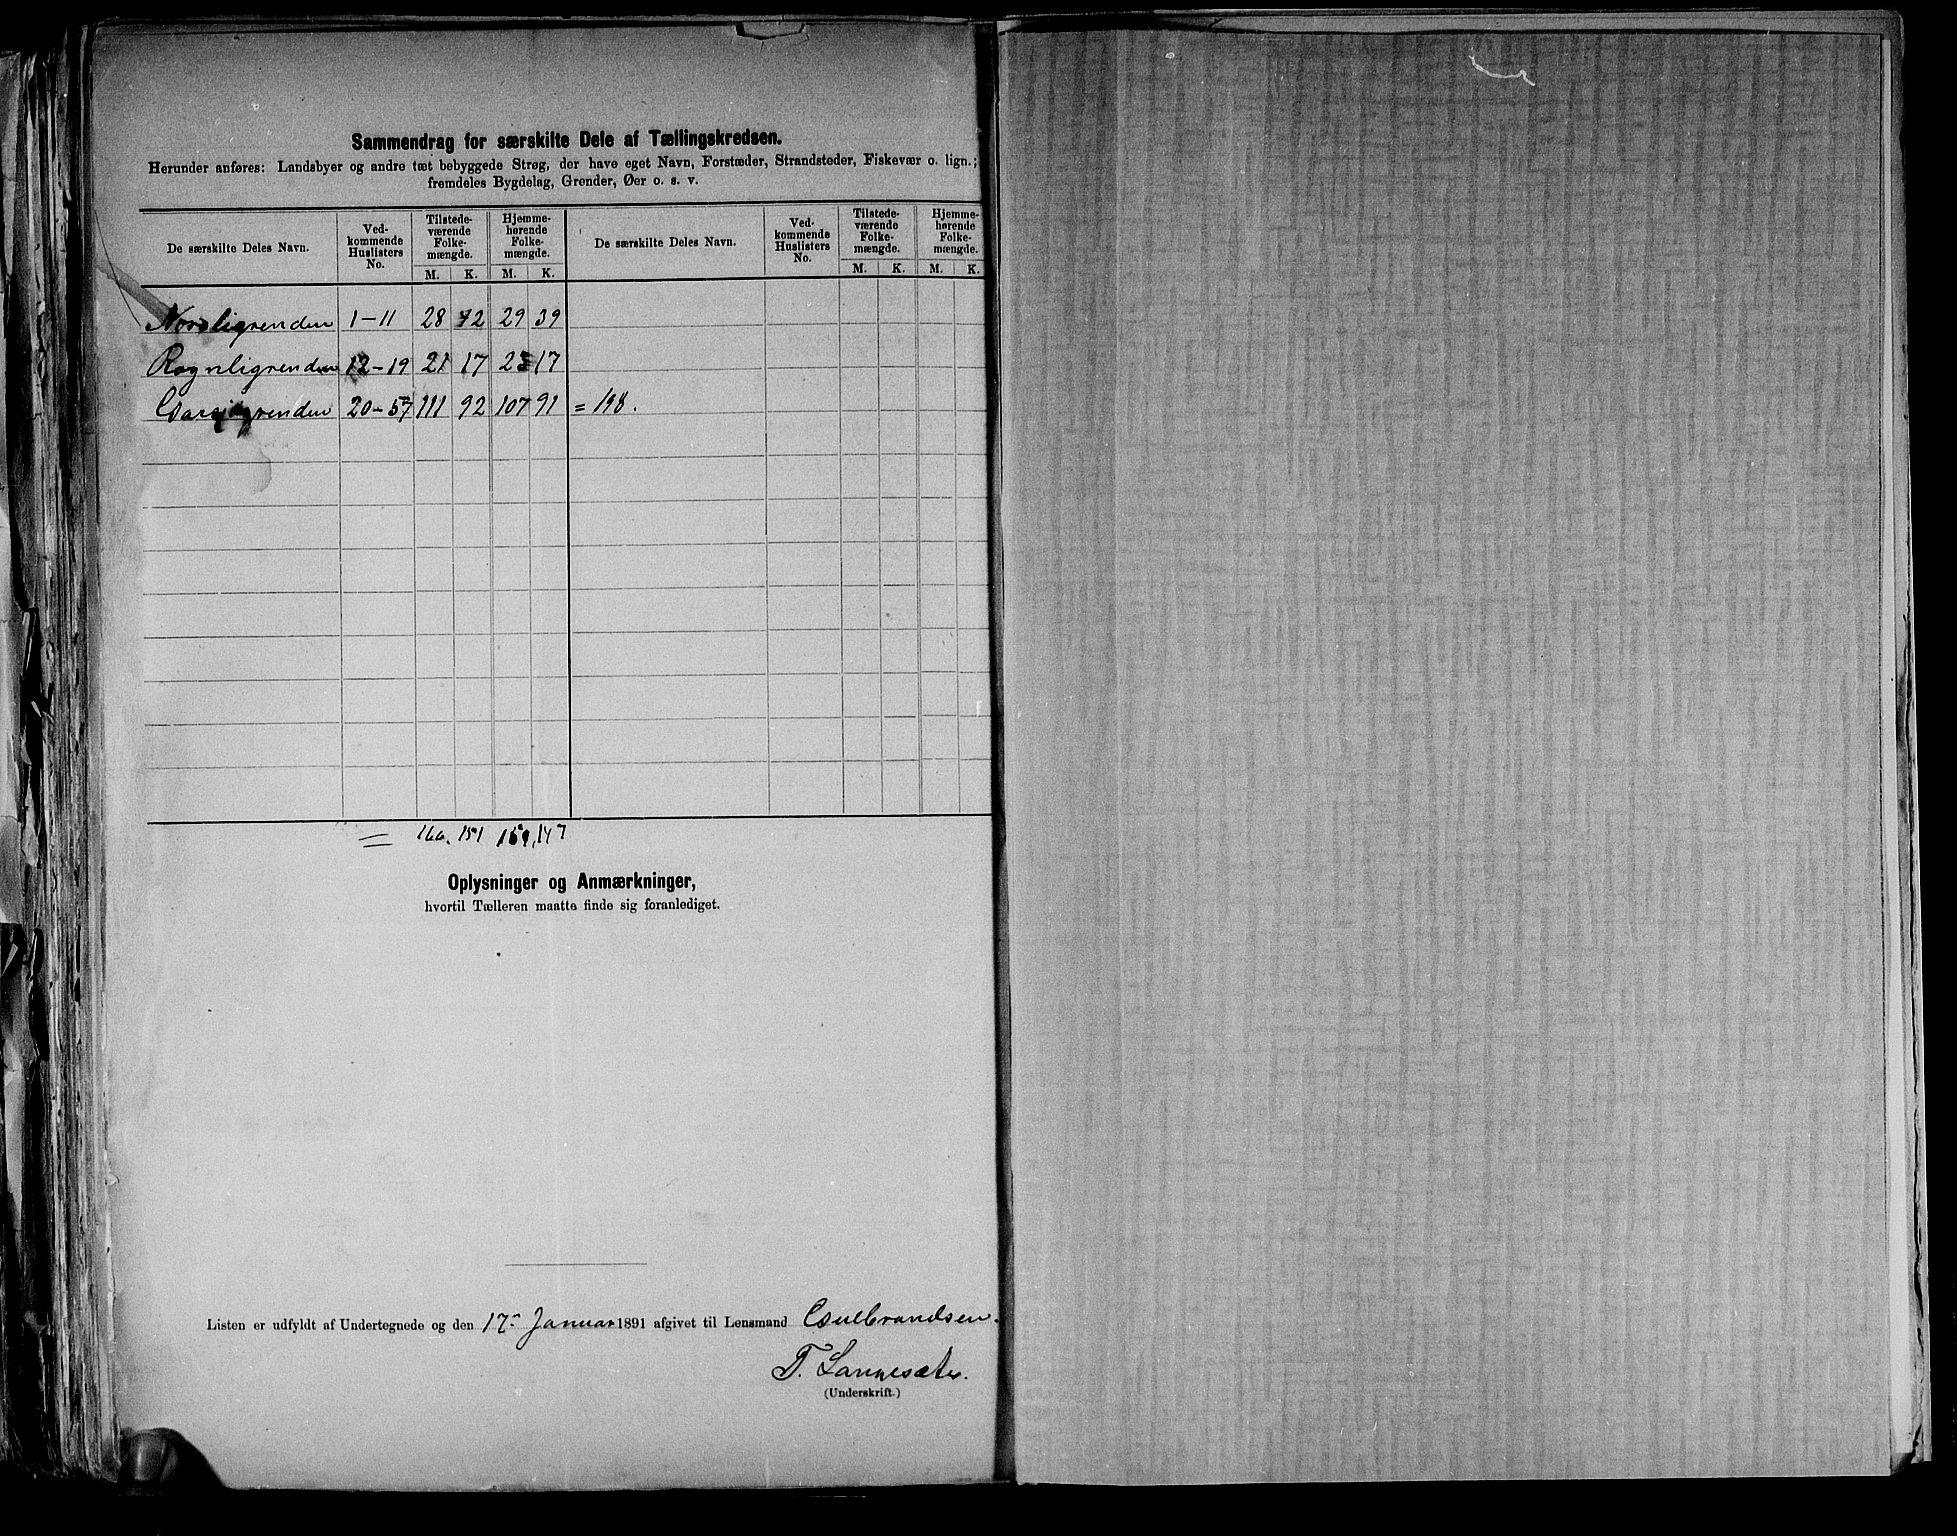 Sammendrag for særskilte Dele af Tællingskredsen.
Herunder anføres: Landsbyer og andre tæt bebyggede Strøg, der have eget Navn, Forstæder, Strandsteder, Fiskevær o. lign.;
fremdeles Bygdelag, Grender, Øer o. s. v.
De særskilte Deles Navn. Ved-kommende Huslisters No. Tilstede-værende Folke-mængde. Hjemme-hørende Folke-mængde. De særskilte Deles Navn. Ved-kommende Huslisters No. Tilstede-værende Folke-mængde. Hjemme-hørende Folke-mængde.
M. K. M. K. M. K. M. K.
Nordligrenden 1-11 28 42 29 39
Rognligrenden 12-19 21 17 23 17
20-57 111 92 107 91 = 198.
= 160. 151 159, 147
Oplysninger og Anmærkninger,
hvortil Tælleren maatte finde sig foranlediget.
Listen er udfyldt af Undertegnede og den 17- Januar 1891 afgivet til Lensmand Gulbrandsen.
T. Langesæter.
(Underskrift.)